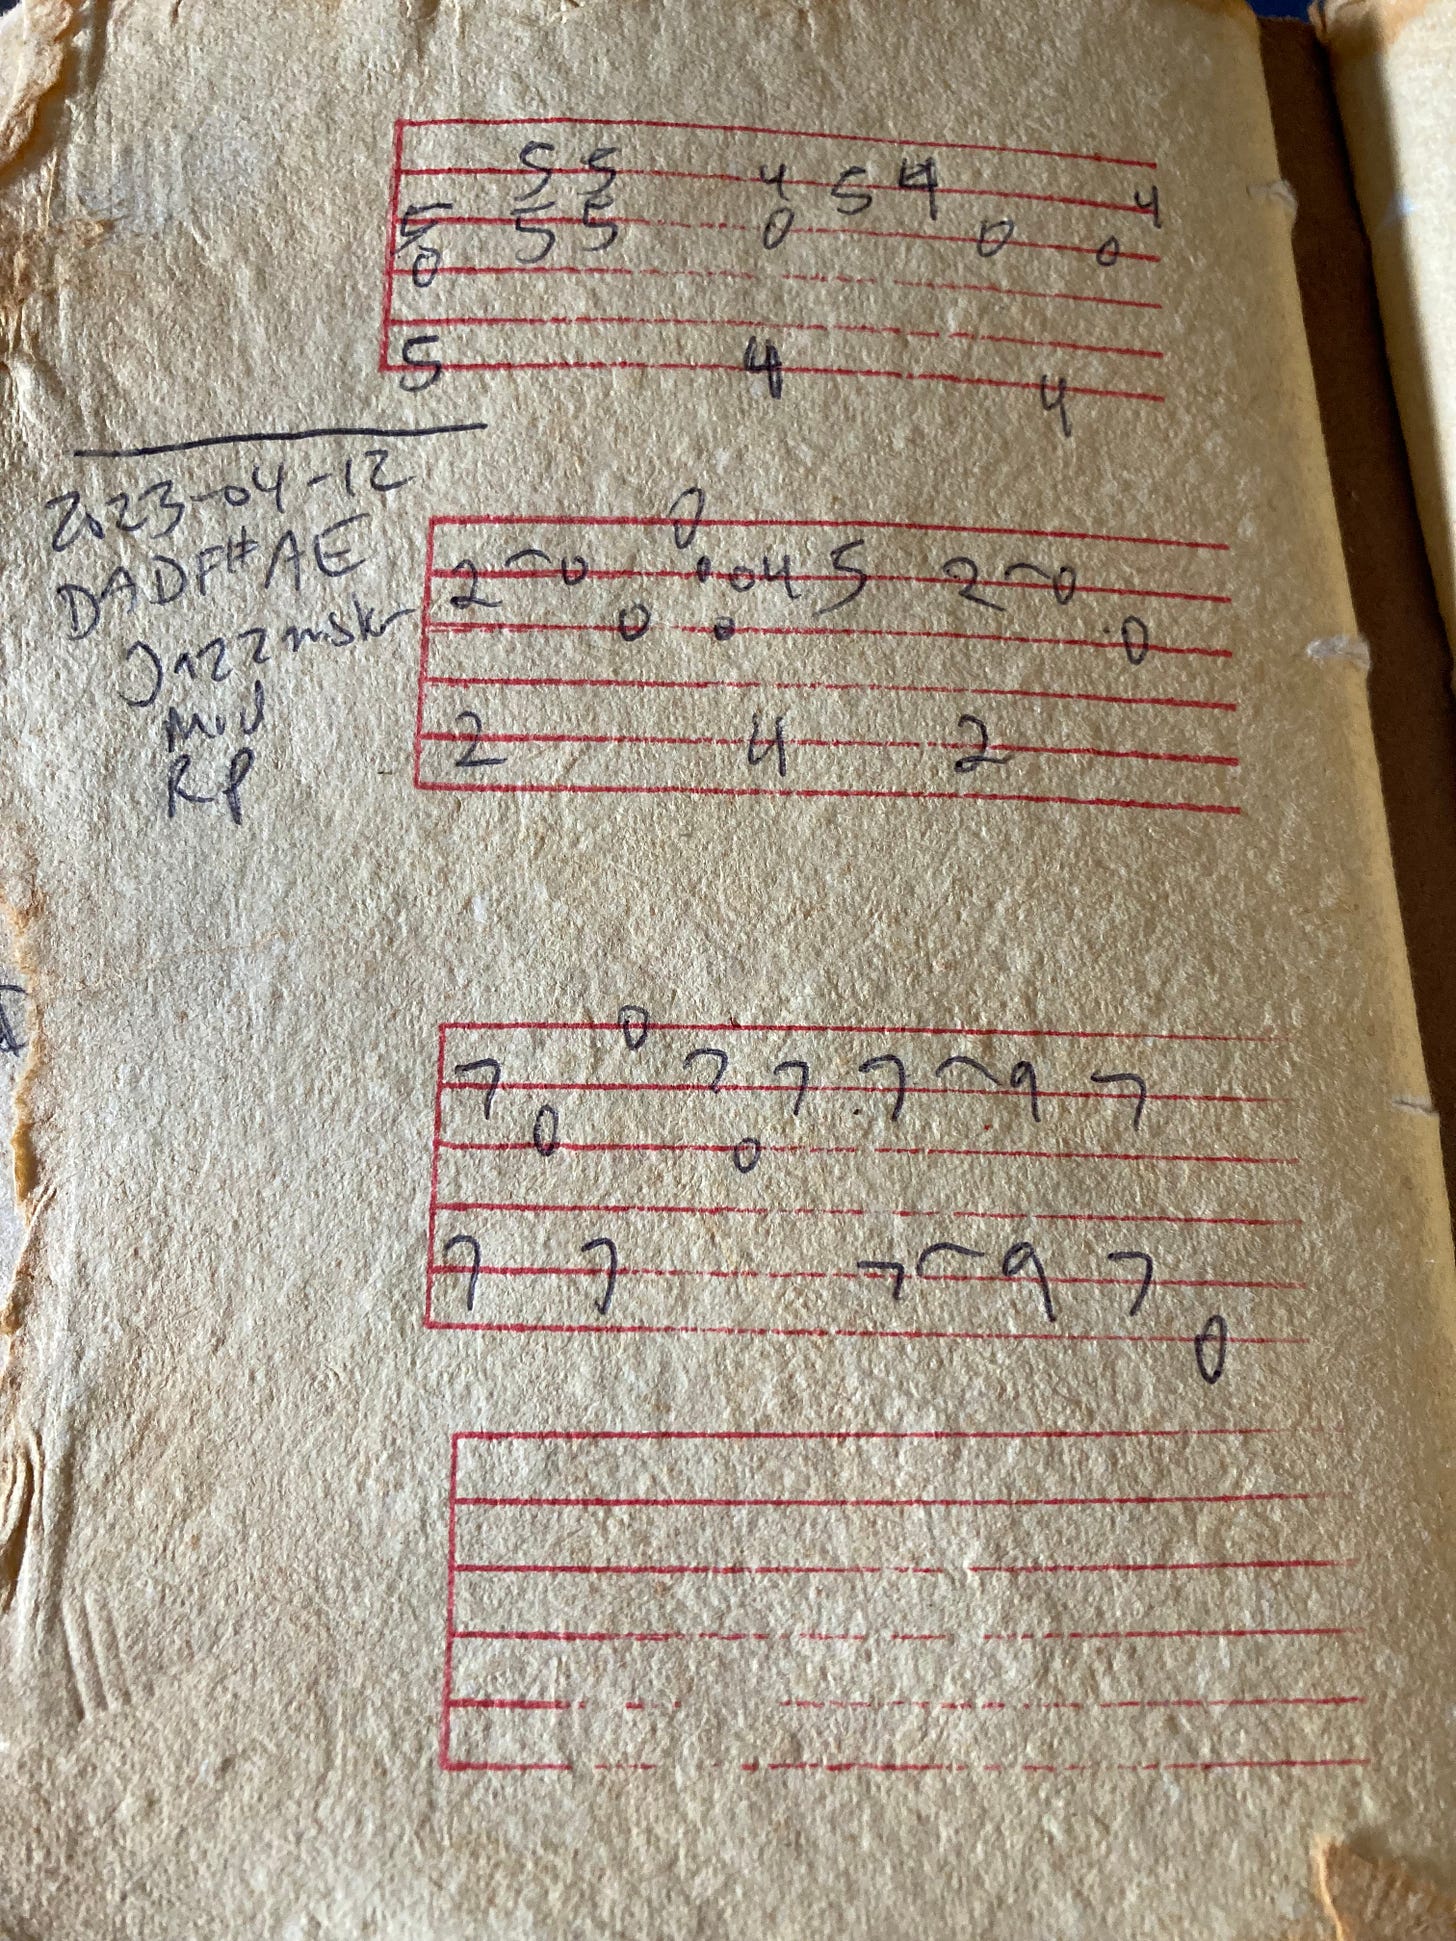 5 5 4 5 4 4
5 5 5 0 0 0
0
5 4 4
2023-04-12
DADF#AE
Mod
RP
0
2~0 04 5 2~0
0 0
2 4 2
0
7 7 7 7~9 7
0 0
7 7 7~9 7
0